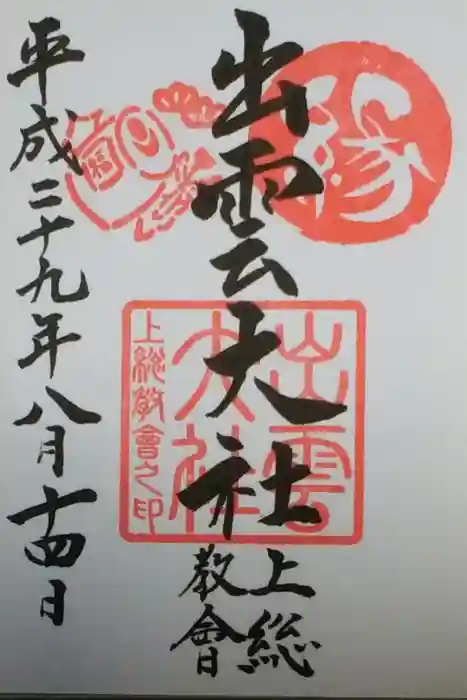 出雲大社
上総
教會
平成二十九年八月十四日
縁
福
出雲
大社
上総教會之印